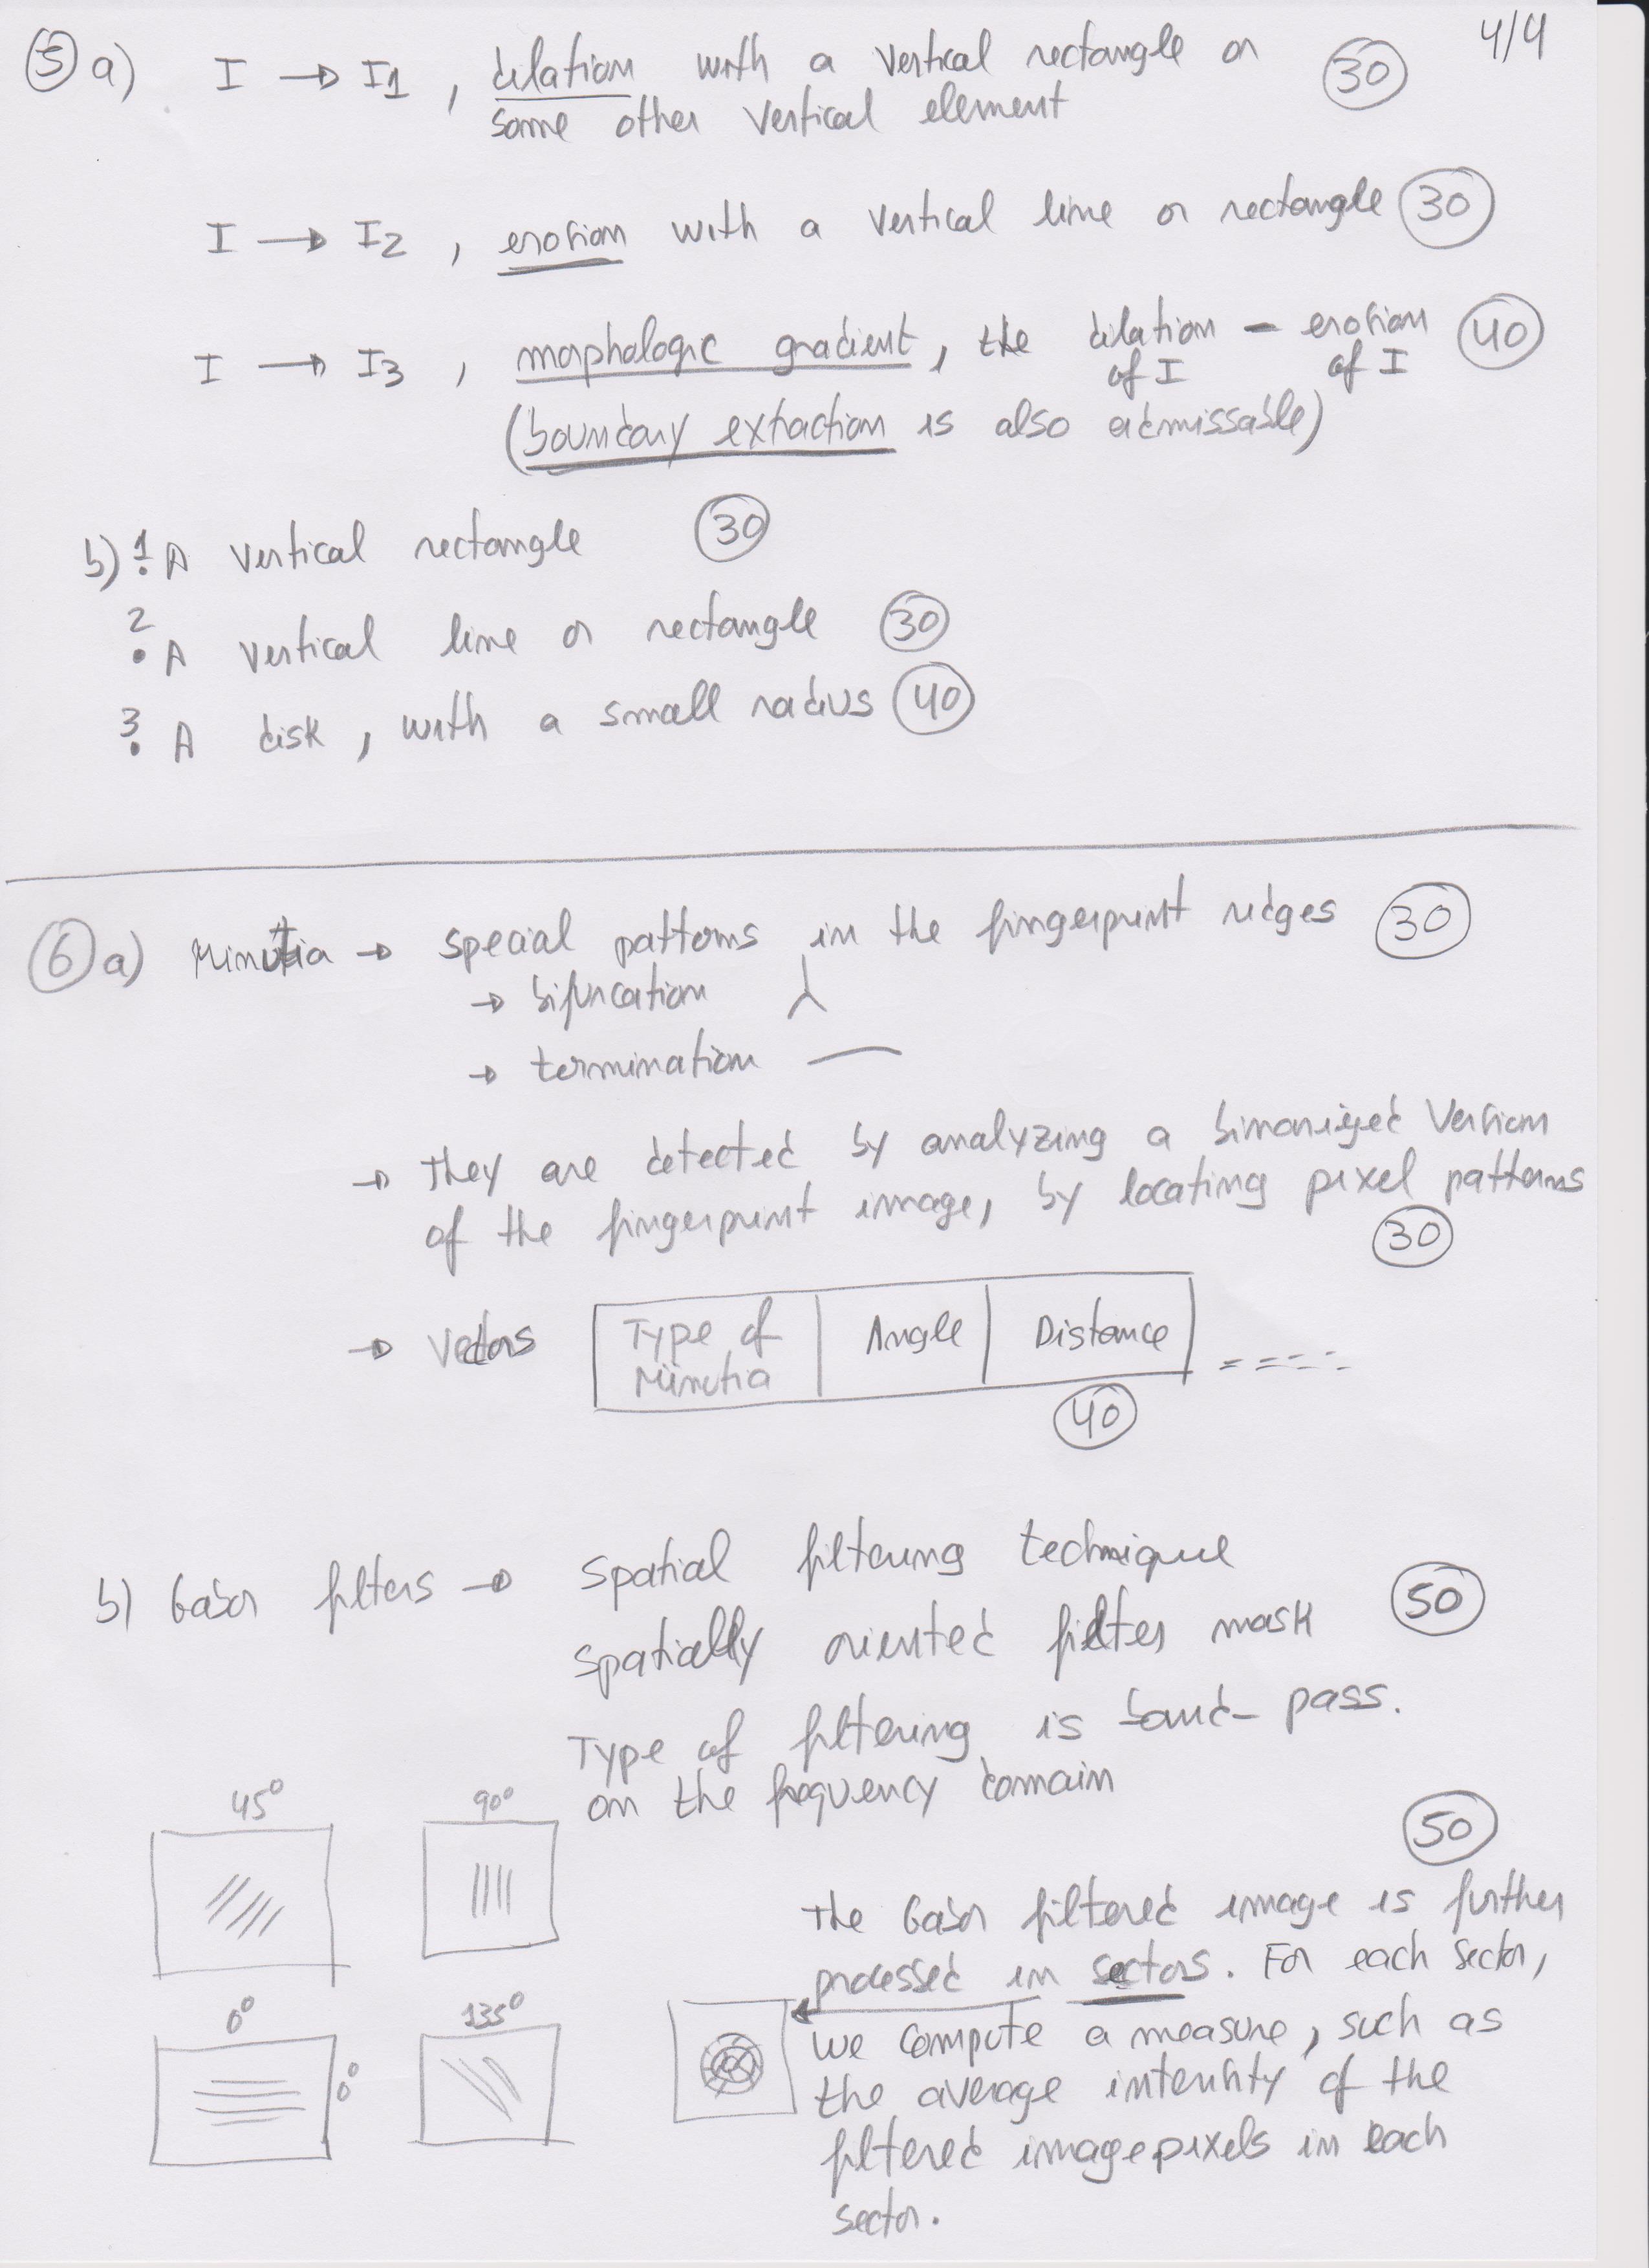 4/4
5 a) I → I1, dilation with a vertical rectangle or 30
some other vertical element
I → I2, erosion with a vertical line or rectangle 30
I → I3, morphologic gradient, the dilation - erosion 40
of I of I
(boundary extraction is also admissable)
b) 1. A vertical rectangle 30
2. A vertical line or rectangle 30
3. A disk, with a small radius 40
6 a) Minutia → special patterns in the fingerprint ridges 30
→ bifurcation
→ termination
→ They are detected by analyzing a binarized version
of the fingerprint image, by locating pixel patterns
30
→ Vectors Type of Angle Distance
Minutia
40
b) Gabor filters → Spatial filtering technique
50
Spatially oriented filter mask
Type of filtering is band-pass.
on the frequency domain
45° 90°
50
The Gabor filtered image is further
processed in sectors. For each sector,
0° 135°
we compute a measure, such as
0°
the average intensity of the
filtered image pixels in each
sector.